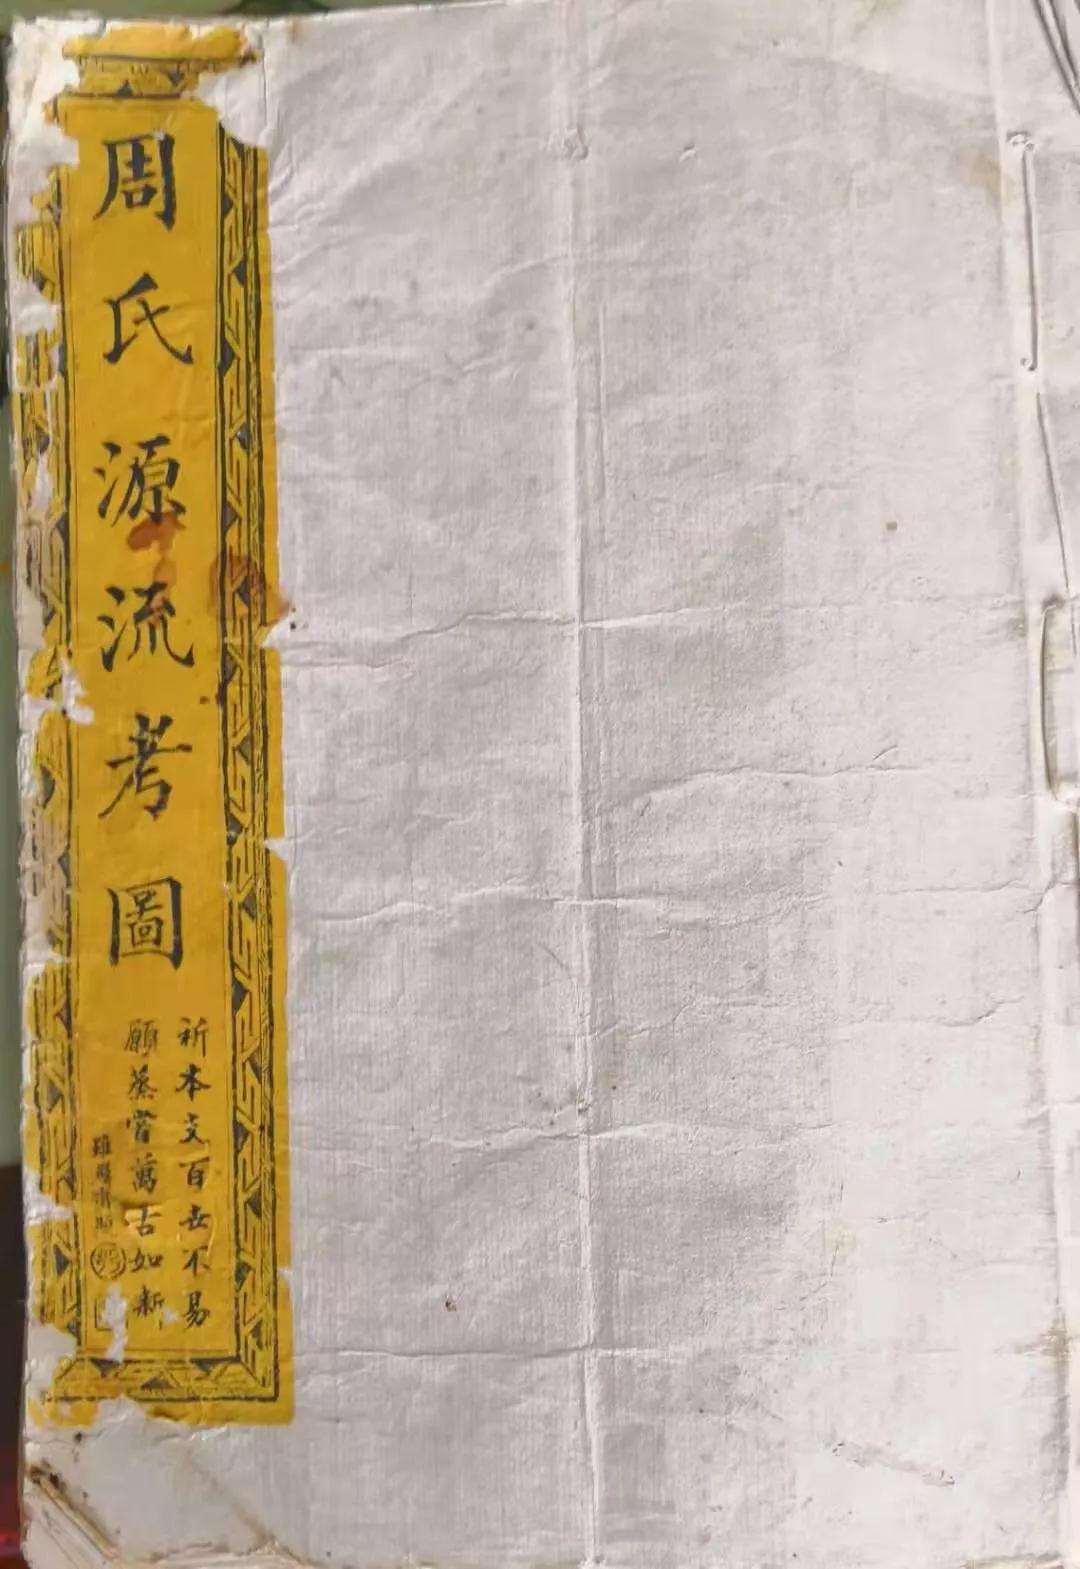 周氏源流考圖
祈本支百世不易
願蒸嘗萬古如新